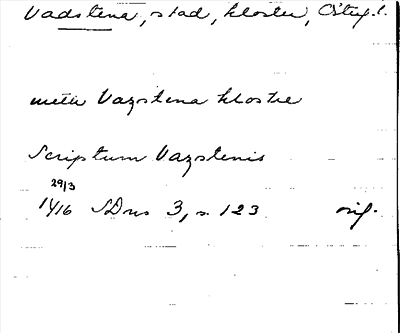 Vadstena, stad, kloster, Östg.l.
meth Vazstenaklostre
Scriptum Vazstenis
29/3
1416 SDns 3, s. 123 orig.